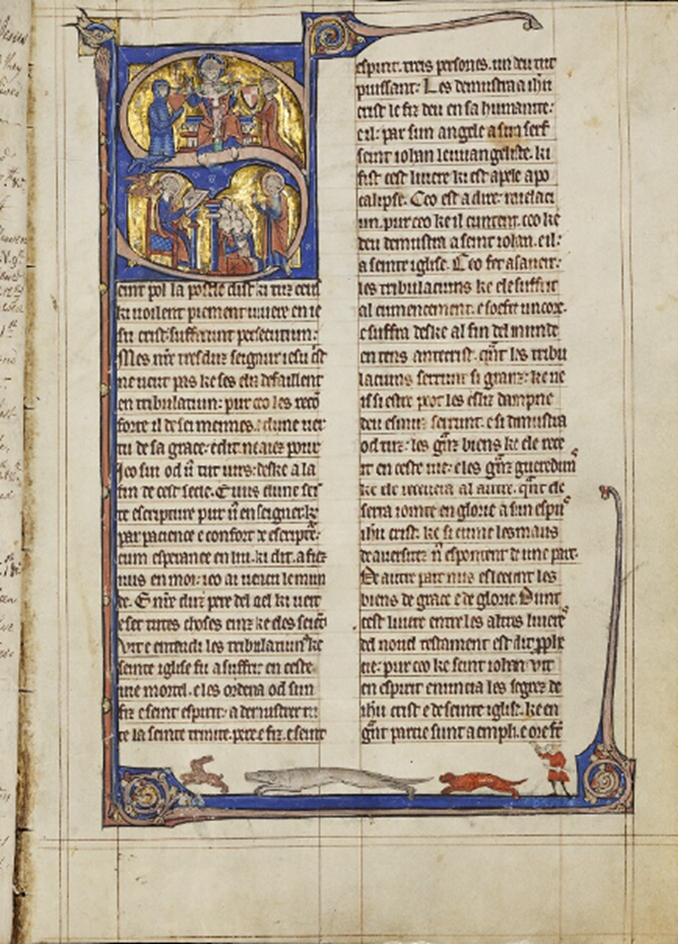 S
eint pol la postle dist ki tuz ceus
ki voilent piement vivere en ie
su crist suffrunt persecutiun:
Mes nr̄e tresduz seignur iesu c̄st
ne veut pas ke ses eliz defaillent
en tribulatiun: pur ceo les recō
forte il de sei mennes. e lune ver
tu de sa grace: e dit. ne aiez pour
Jeo sui od
fin de cest secle. E nus dune sei
te escripture pur
par pacience e confort de
eum esperance en lui. ki dit. afiez
nus en moi: ieo ai vencu le mun
de. E nr̄e duz pere del ciel ki veit
e set tutes choses
vit e entendi les tribulatiuns ke
seinte iglise fu a suffrir en ceste
vie mortel. e les ordena od sun
fiz e seint espirit: a demustrer tu
te la seinte trinite. pere e fiz. e seint
espirit. treis persones. un deu tut
puissant: Les demustra a ihū
crist le fiz deu en sa humanite:
e il: par sun angele a sun serf
seint iohan levangeliste. ki
fist cest livere ki est apele apo
calipse. Ceo est a dire: revelaci
un. pur ceo ke il cuntent. ceo ke
deu demustra a seint iohan. e il:
a seinte iglise. Ceo fet a saveir:
les tribulaciuns ke ele suffrit
al cumencement. e soefre uncore.
e suffra deske al fin del munde
en tens antecrist. qn̄t les tribu
laciuns serrunt si granz: ke ne
il si estre peot les esliz dampne
deu esmuz serrunt. e si dimustra
od tuz: les gn̄z biens ke ele rece
it en ceste vie: e les gn̄z gueredun
ke ele recevera al autre. qn̄t ele
serra iointe en glorie a sun espus
ihū crist. ke si cume les maus
de aversite n̄ espontent de une part.
De autre part nus esleecent les
biens de grace e de glorie. Dunt
cest livere entre les altres livere
del novel testament est dit pphe
cie: pur ceo ke seint iohan vit
en espirit e nuncia les segrez de
ihū crist e de seinte iglise. ke en
gn̄t partie sunt a empli. e ore